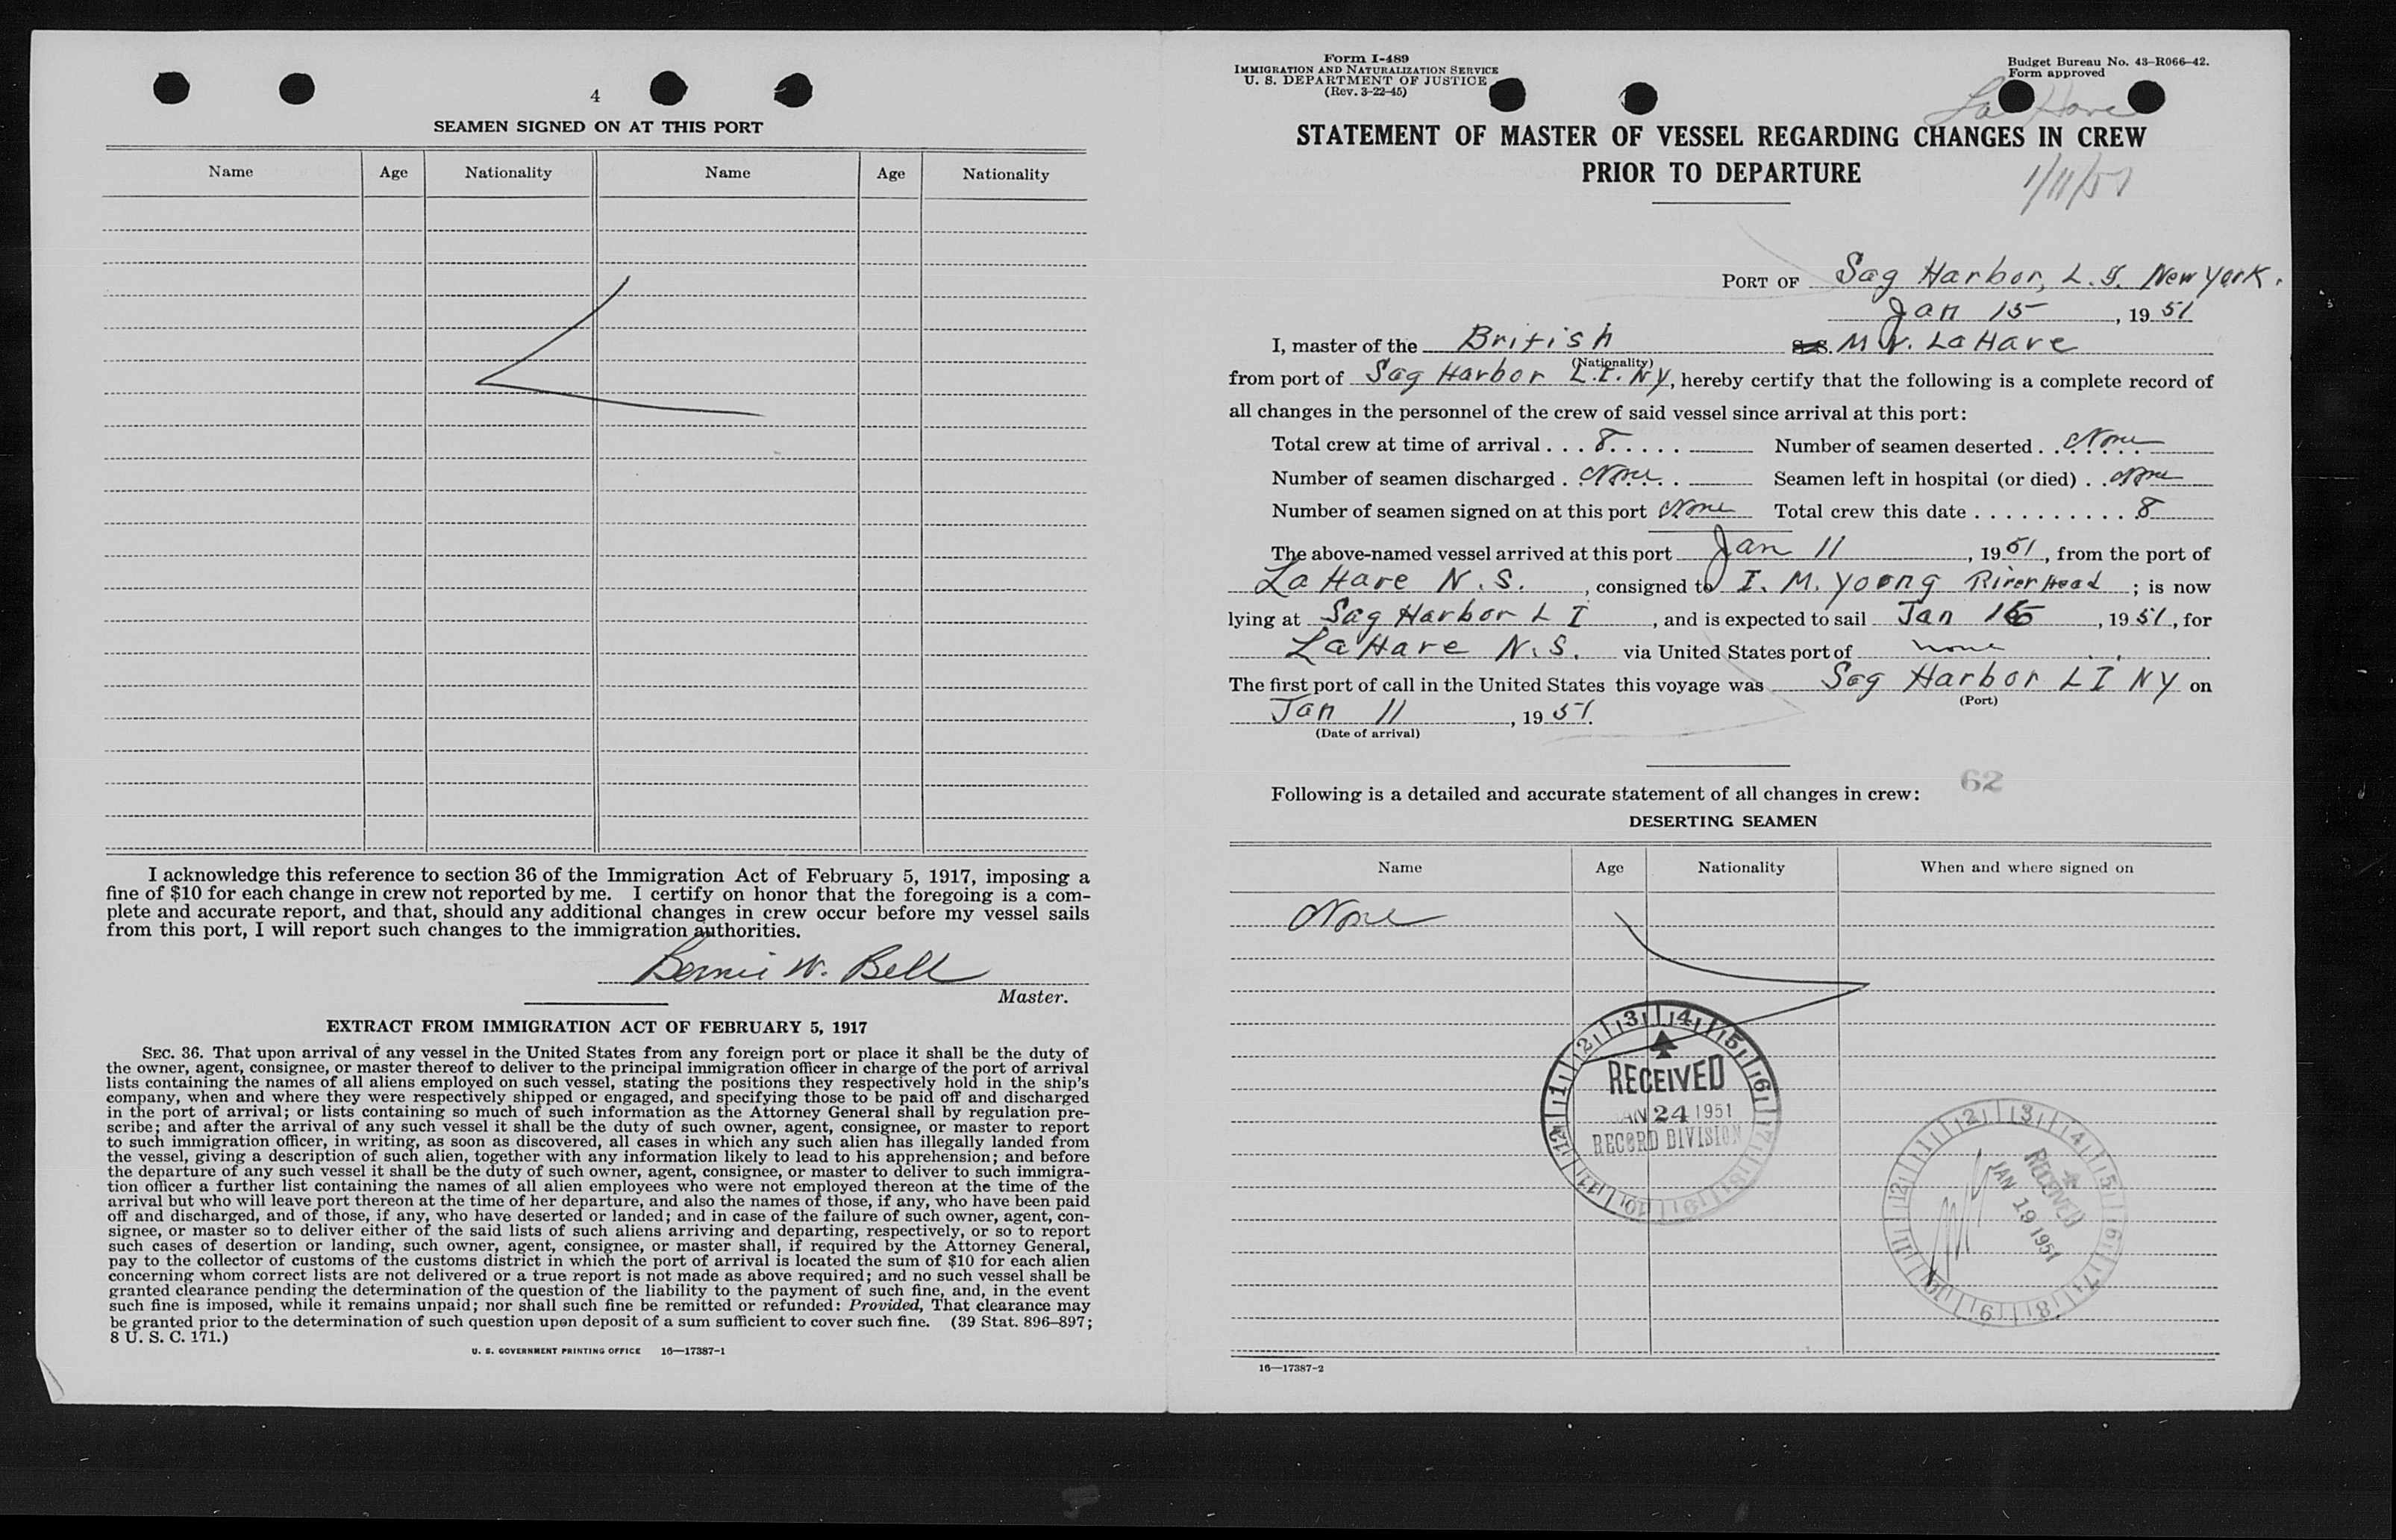 4
SEAMEN SIGNED ON AT THIS PORT
Name Age Nationality Name Age Nationality
I acknowledge this reference to section 36 of the Immigration Act of February 5, 1917, imposing a
fine of $10 for each change in crew not reported by me. I certify on honor that the foregoing is a com-
plete and accurate report, and that, should any additional changes in crew occur before my vessel sails
from this port, I will report such changes to the immigration authorities.
Bernie W. Bell
Master.
EXTRACT FROM IMMIGRATION ACT OF FEBRUARY 5, 1917
SEC. 36. That upon arrival of any vessel in the United States from any foreign port or place it shall be the duty of
the owner, agent, consignee, or master thereof to deliver to the principal immigration officer in charge of the port of arrival
lists containing the names of all aliens employed on such vessel, stating the positions they respectively hold in the ship's
company, when and where they were respectively shipped or engaged, and specifying those to be paid off and discharged
in the port of arrival; or lists containing so much of such information as the Attorney General shall by regulation pre-
scribe; and after the arrival of any such vessel it shall be the duty of such owner, agent, consignee, or master to report
to such immigration officer, in writing, as soon as discovered, all cases in which any such alien has illegally landed from
the vessel, giving a description of such alien, together with any information likely to lead to his apprehension; and before
the departure of any such vessel it shall be the duty of such owner, agent, consignee, or master to deliver to such immigra-
tion officer a further list containing the names of all alien employees who were not employed thereon at the time of the
arrival but who will leave port thereon at the time of her departure, and also the names of those, if any, who have been paid
off and discharged, and of those, if any, who have deserted or landed; and in case of the failure of such owner, agent, con-
signee, or master so to deliver either of the said lists of such aliens arriving and departing, respectively, or so to report
such cases of desertion or landing, such owner, agent, consignee, or master shall, if required by the Attorney General,
pay to the collector of customs of the customs district in which the port of arrival is located the sum of $10 for each alien
concerning whom correct lists are not delivered or a true report is not made as above required; and no such vessel shall be
granted clearance pending the determination of the question of the liability to the payment of such fine, and, in the event
such fine is imposed, while it remains unpaid; nor shall such fine be remitted or refunded: Provided, That clearance may
be granted prior to the determination of such question upon deposit of a sum sufficient to cover such fine. (39 Stat. 896–897;
8 U. S. C. 171.)
U. S. GOVERNMENT PRINTING OFFICE 16—17387-1
Form I-489
IMMIGRATION AND NATURALIZATION SERVICE
U. S. DEPARTMENT OF JUSTICE
(Rev. 3-22-45)
Budget Bureau No. 43-R066-42.
Form approved
La Have
STATEMENT OF MASTER OF VESSEL REGARDING CHANGES IN CREW
PRIOR TO DEPARTURE
1/11/51
PORT OF Sag Harbor, L. I. New York.
Jan 15, 19 51
I, master of the British S. S. M V. LaHave
(Nationality)
from port of Sag Harbor L.I. NY, hereby certify that the following is a complete record of
all changes in the personnel of the crew of said vessel since arrival at this port:
Total crew at time of arrival . . . 8 . . . . . Number of seamen deserted . . None
Number of seamen discharged . None . . Seamen left in hospital (or died) . . None
Number of seamen signed on at this port None Total crew this date . . . . . . . . . . 8
The above-named vessel arrived at this port Jan 11, 1951, from the port of
LaHave N.S., consigned to I. M. Young RiverHead; is now
lying at Sag Harbor L I, and is expected to sail Jan 16, 19 51, for
LaHave N.S. via United States port of none
The first port of call in the United States this voyage was Sag Harbor L I N Y on
(Port)
Jan 11, 19 51.
(Date of arrival)
62
Following is a detailed and accurate statement of all changes in crew:
DESERTING SEAMEN
Name Age Nationality When and where signed on
None
1 2 3 4 5 6 7 8 9 10 11 12
RECEIVED
JAN 24 1951
RECORD DIVISION
1 2 3 4 5 6 7 8 9 10 11 12
RECEIVED
JAN 19 1951
16—17387-2